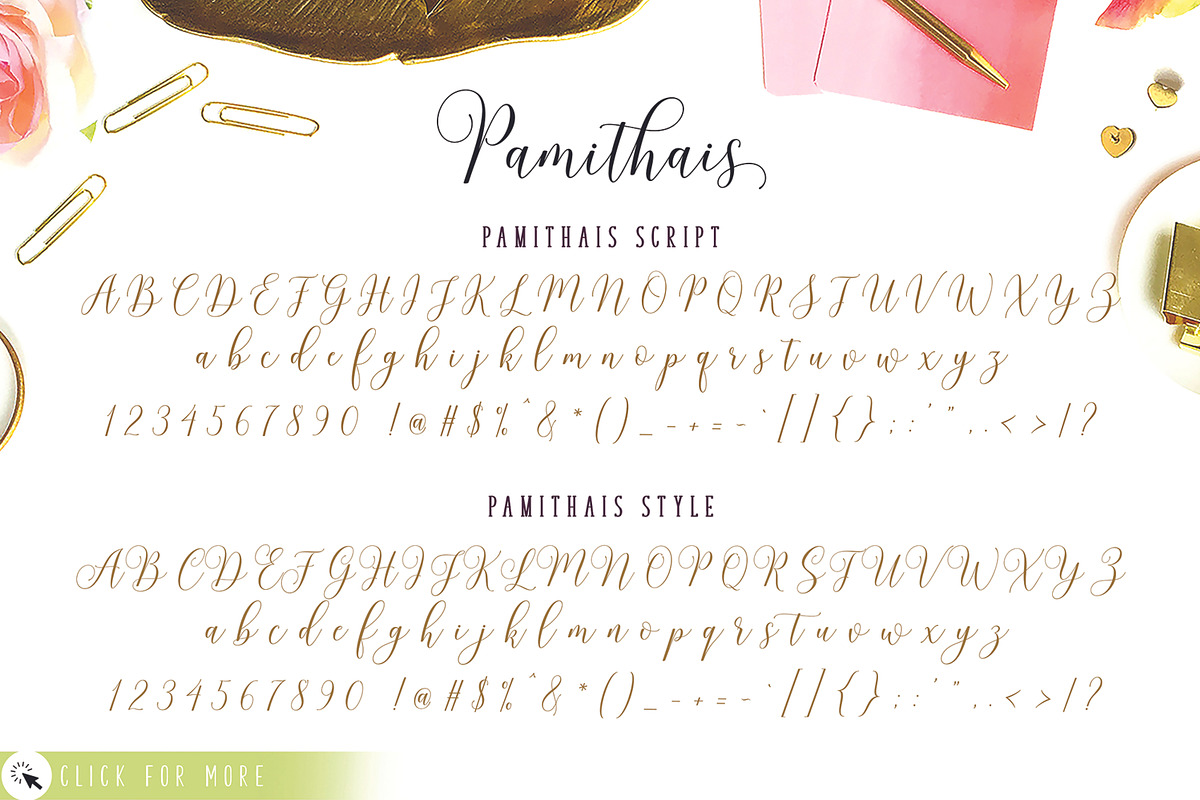 Pamithais
PAMITHAIS SCRIPT
A B C D E F G H I J K L M N O P Q R S T U V W X Y Z
a b c d e f g h i j k l m n o p q r s t u v w x y z
1 2 3 4 5 6 7 8 9 0 ! @ # $ % ^ & * ( ) _ - + = ~ ` [ ] { } ; : ' " , . < > | ?
PAMITHAIS STYLE
A B C D E F G H I J K L M N O P Q R S T U V W X Y Z
a b c d e f g h i j k l m n o p q r s t u v w x y z
1 2 3 4 5 6 7 8 9 0 ! @ # $ % ^ & * ( ) _ - + = ~ ` [ ] { } ; : ' " , . < > | ?
CLICK FOR MORE